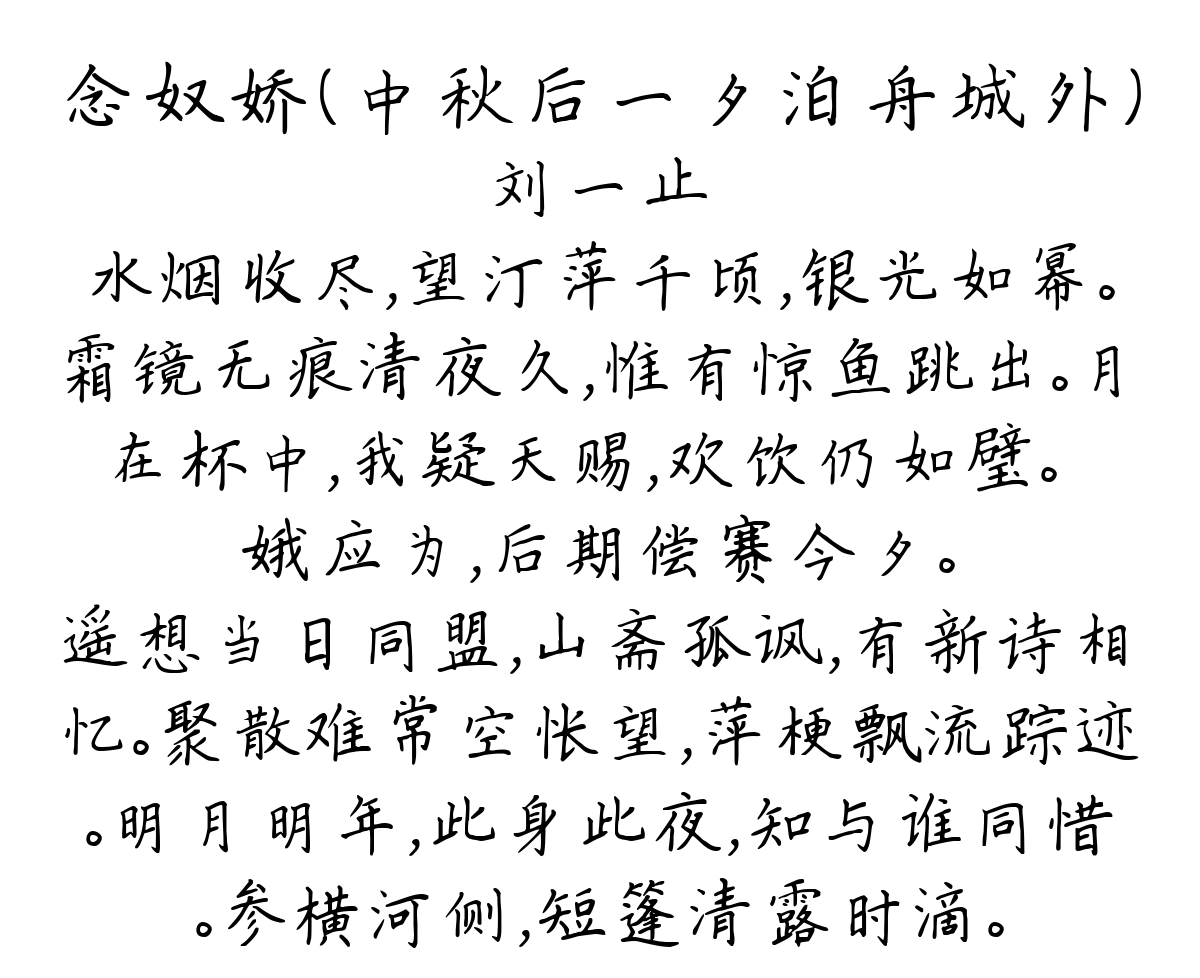 念奴娇(中秋后一夕泊舟城外)
刘一止
水烟收尽,望汀萍千顷,银光如幂。
霜镜无痕清夜久,惟有惊鱼跳出。月
在杯中,我疑天赐,欢饮仍如璧。
娥应为,后期偿赛今夕。
遥想当日同盟,山斋孤讽,有新诗相
忆。聚散难常空怅望,萍梗飘流踪迹
。明月明年,此身此夜,知与谁同惜
。参横河侧,短篷清露时滴。